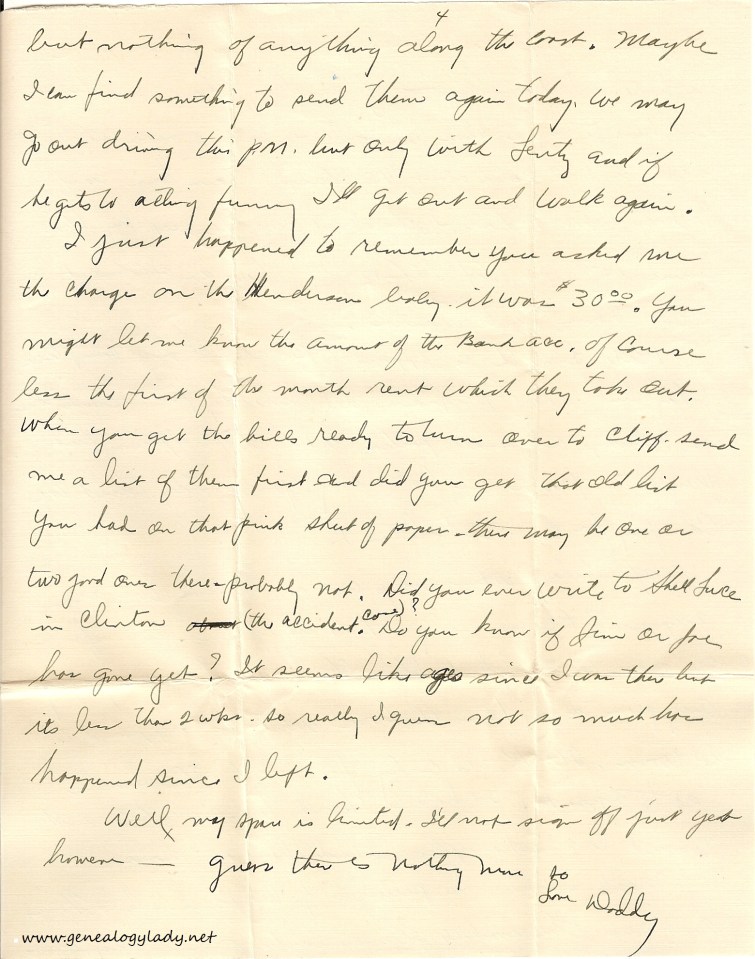 4
but nothing of anything along the coast. Maybe
I can find something to send them again today. We may
go out driving this p.m. but only with Lentz and if
he gets to acting funny I'll get out and walk again.
I just happened to remember you asked me
the charge on the Henderson baby. it was $30.00. You
might let me know the amount of the Bank acc. of course
less the first of the month rent which they take out.
When you get the bills ready to turn over to Cliff - send
me a list of them first and did you get that old list
you had on that pink sheet of paper - there may be one or
two good ones there - probably not. Did you ever write to Shell
in Clinton about (the accident case)? Do you know if Jim or Joe
has gone yet? It seems like ages since I was there but
its less than 2 wks. so really I guess not so much has
happened since I left.
Well, my space is limited - I'll not sign off just yet
however — guess there is nothing more so
Love Daddy
www.genealogylady.net